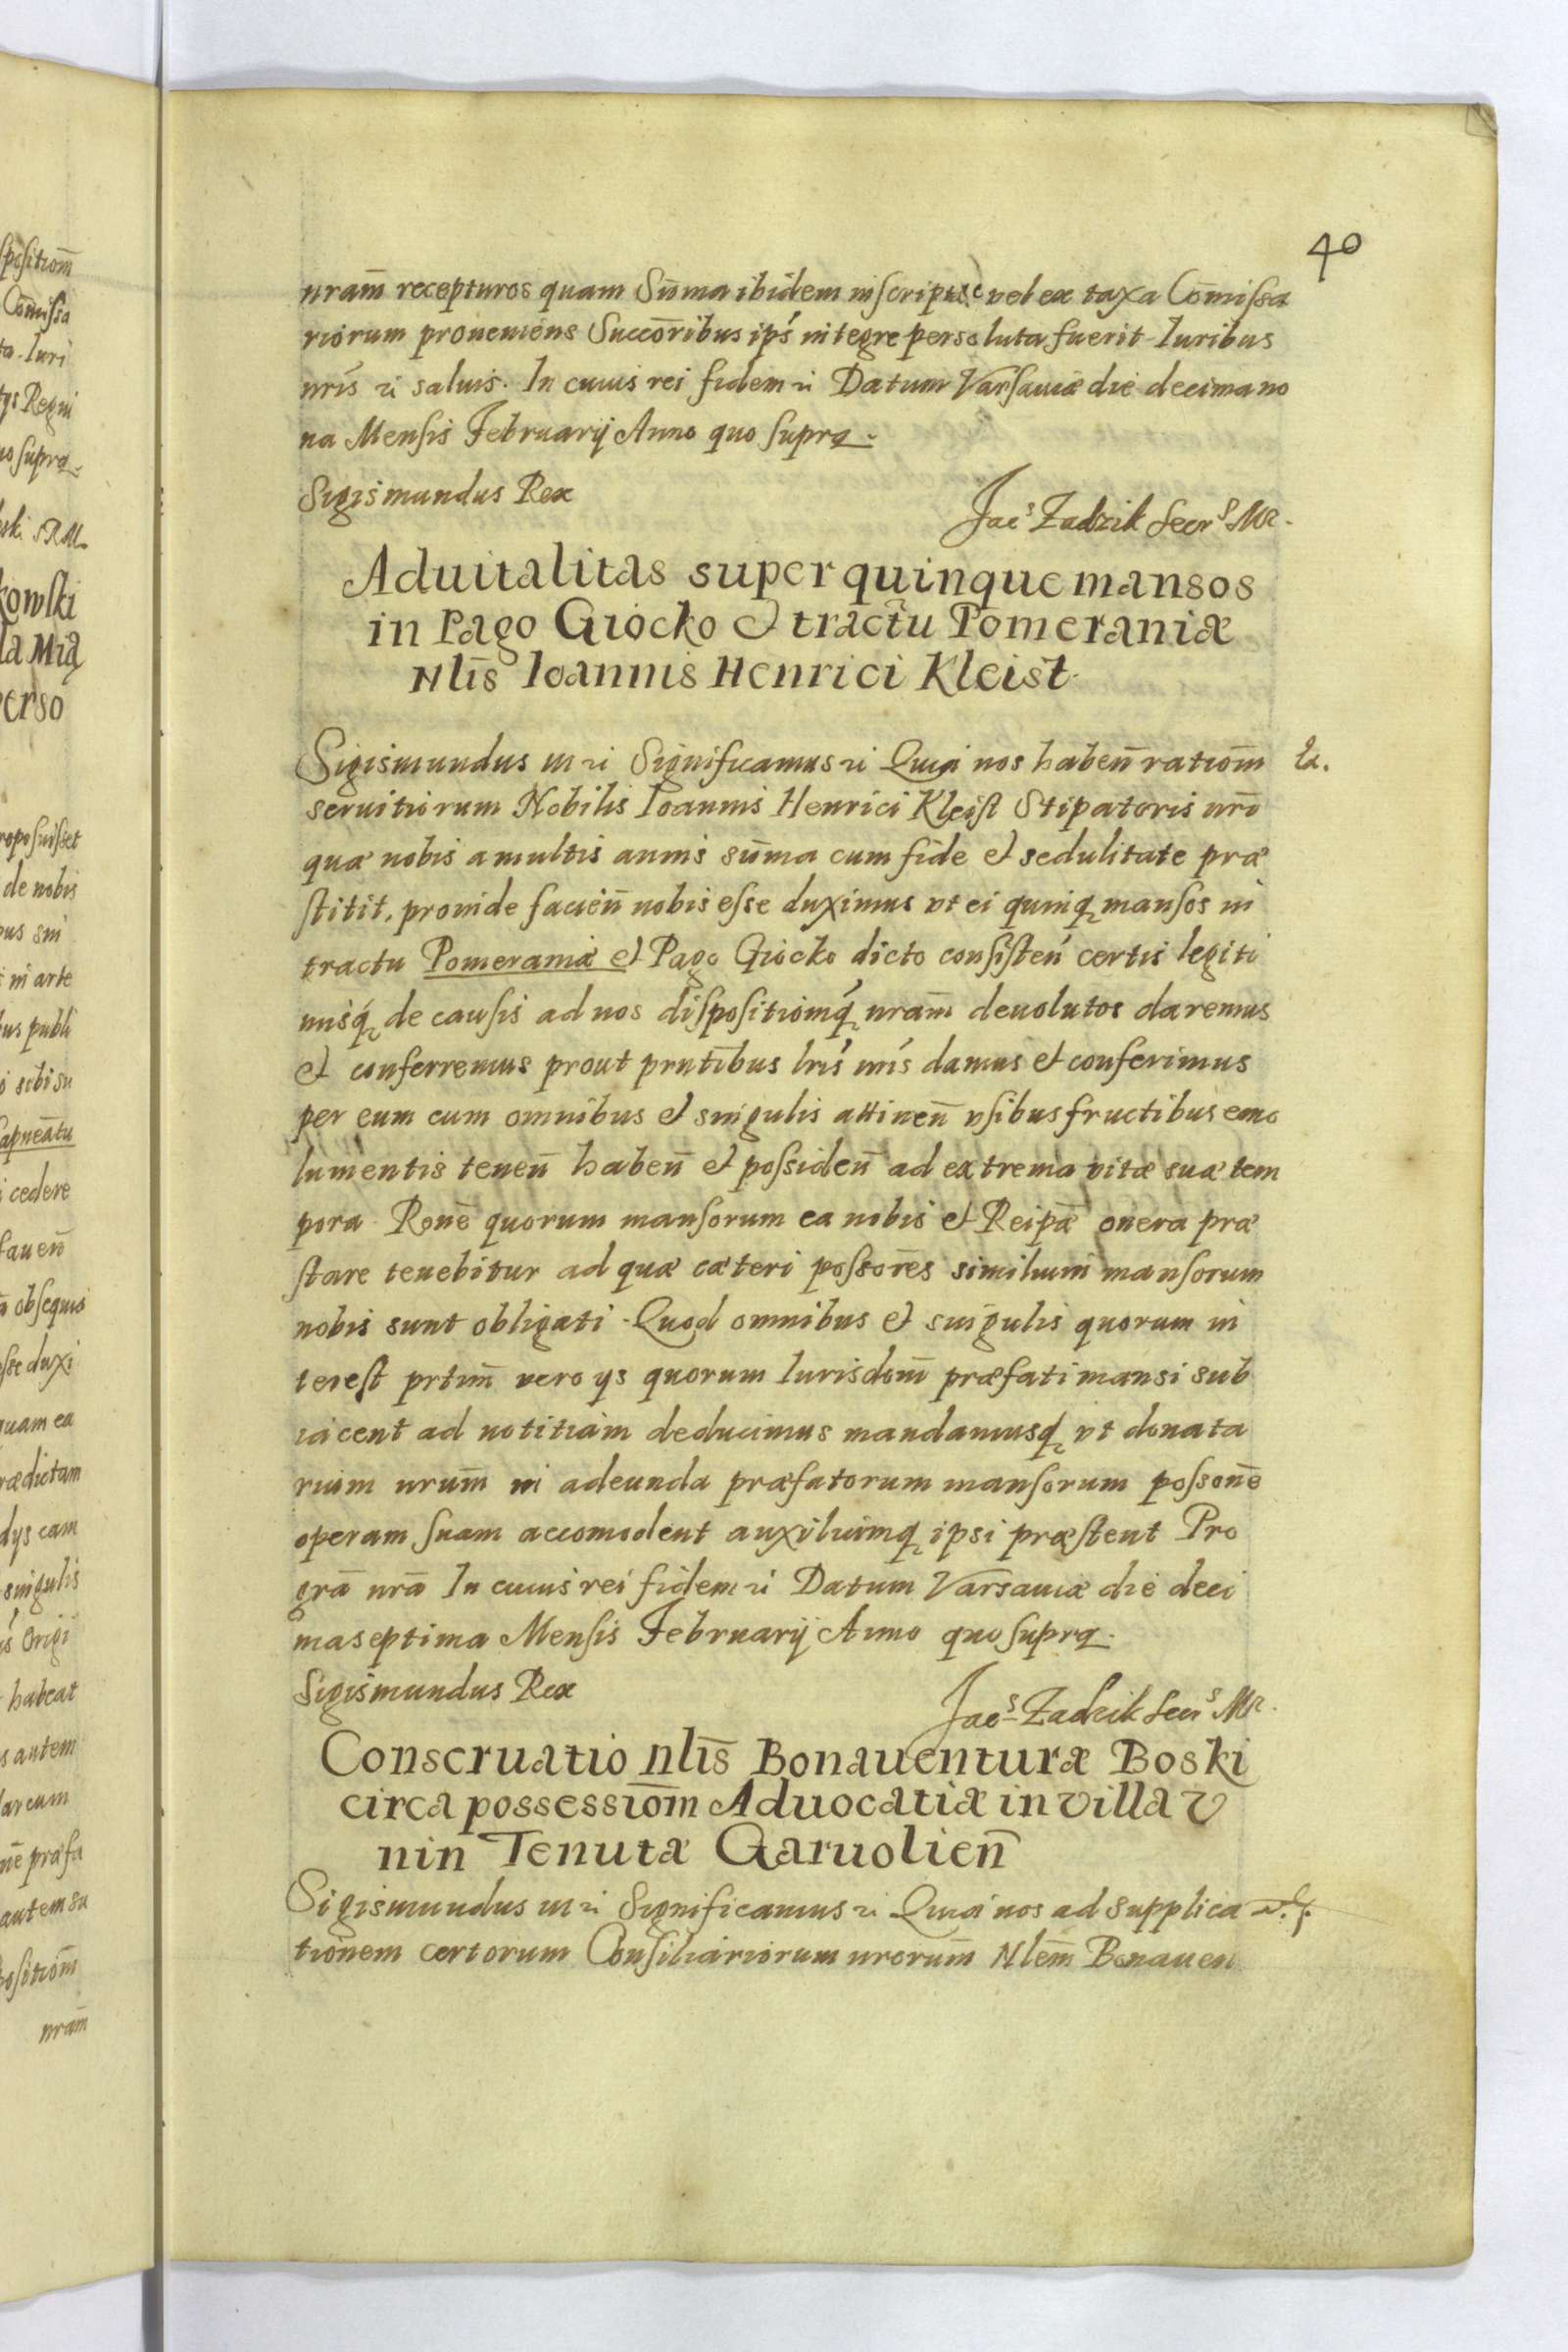 40
nram̄ recepturos quam Sum̄ma ibidem inscriptae vel ex taxa Com̄issa
riorum proueniens Succōribus ips̄ integre persoluta fuerit Iuribus
nrīs ꝛi saluis. In cuius rei fidem ꝛi Datum Varsauiæ die decimano
na Mensis February Anno quo supra.
Sigismundus Rex
Jacˢ Zadzik Secrˢ MR.
Aduitalitas super quinque mansos
in Pago Giocko & tractu Pomeraniæ
Nlīs Ioannis Henrici Kleist.
Sigismundus III ꝛi Significamus ꝛi Quia nos haben̄ ratiom̄
seruitiorum Nobilis Ioannis Henrici Kleist Stipatoris nrī
quæ nobis a multis annis sum̄a cum fide et sedulitate præ
stitit, proinde facien̄ nobis esse duximus vt ei quinq̨ mansos in
tractu Pomeraniæ et Pago Giocko dicto consisten̄ certis legiti
misq̨ de causis ad nos dispositiomq̨ nram̄ deuolutos daremus
et conferremus prout prntibus lrīs nrīs damus et conferimus
per eum cum omnibus et singulis attinen̄ vsibus fructibus emo
lumentis tenen̄ haben̄ et possiden̄ ad extrema vitæ suæ tem
pora Ronē quorum mansorum ea nobis et Reipā onera præ
stare tenebitur ad quæ cæteri possorēs similium mansorum
nobis sunt obligati. Quod omnibus et singulis quorum in
terest prtim̄ vero ys quorum Iurisdom̄ præfati mansi sub
iacent ad notitiam deducimus mandamusq̨ vt donata
rium nrum̄ in adeunda præfatorum mansorum possonē
operam suam accomodent auxiliumq̨ ipsi præstent Pro
grā nrā In cuius rei fidem ꝛi Datum Varsauiæ die deci
maseptima Mensis February Anno quo supra.
Sigismundus Rex
Jacˢ Zadzik Secrˢ MR.
Conseruatio nlīs Bonauenturæ Boski
circa possessiom̄ Aduocatiæ in villa V
nin Tenutæ Garuolien̄
Sigismundus III ꝛi Significamus ꝛi Quia nos ad supplica
tionem certorum Consiliariorum nrorum̄ Nlem̄ Bonauen